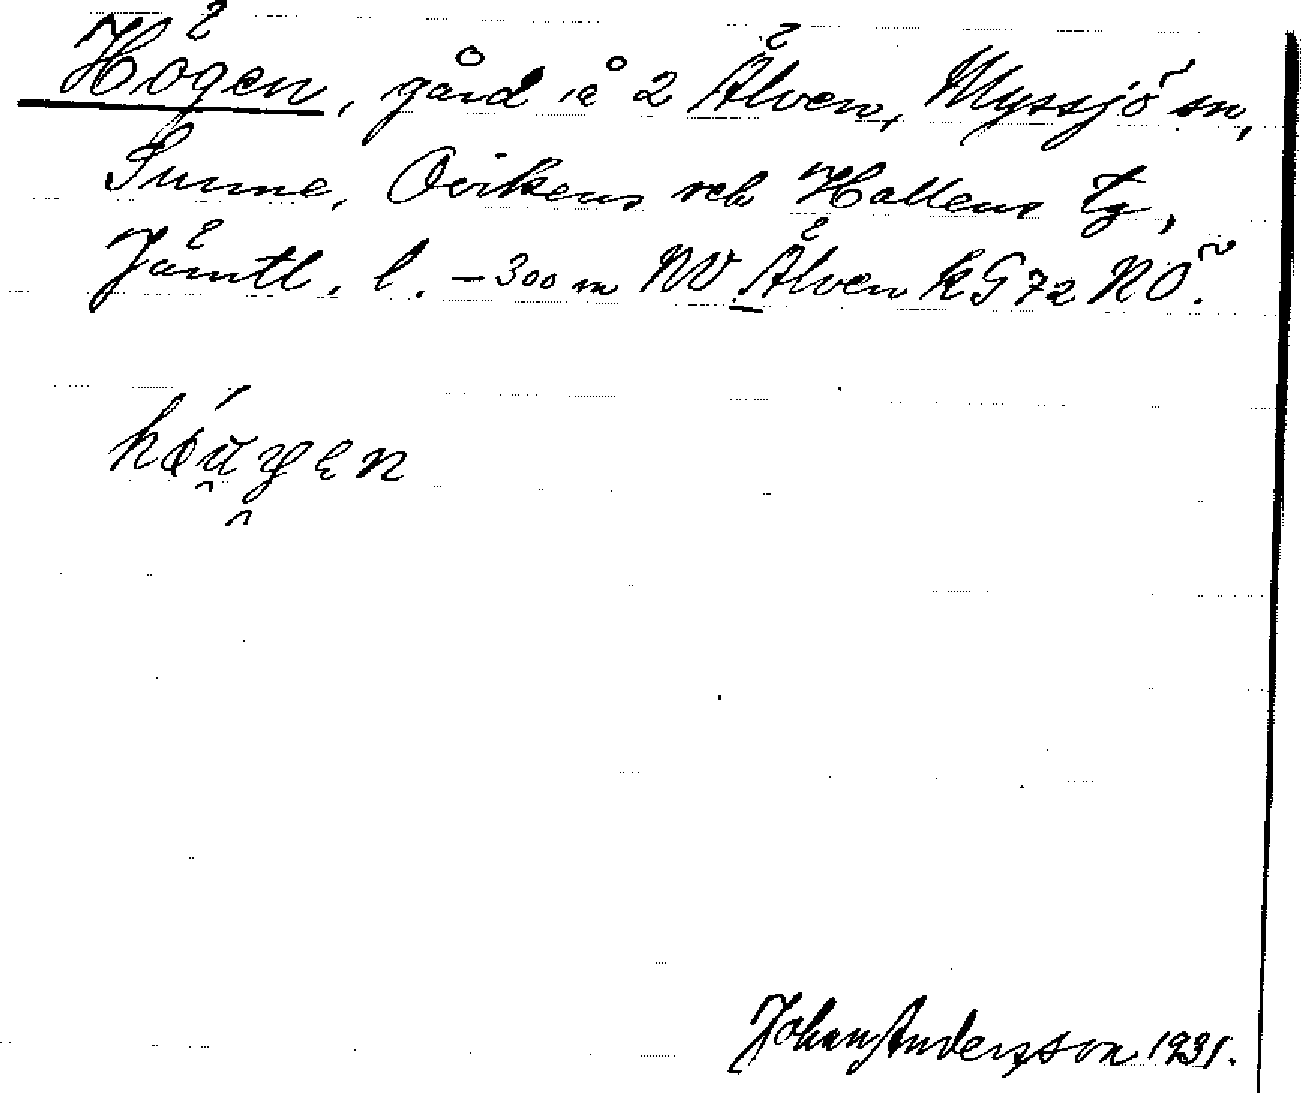 Högen, gård å 2 Älven, Myssjö sn,
Sunne, Ovikens och Hallens tg,
Jämtl. l. – 300 m NV Älven kG72 NÖ.
Johan Andersson 1931.